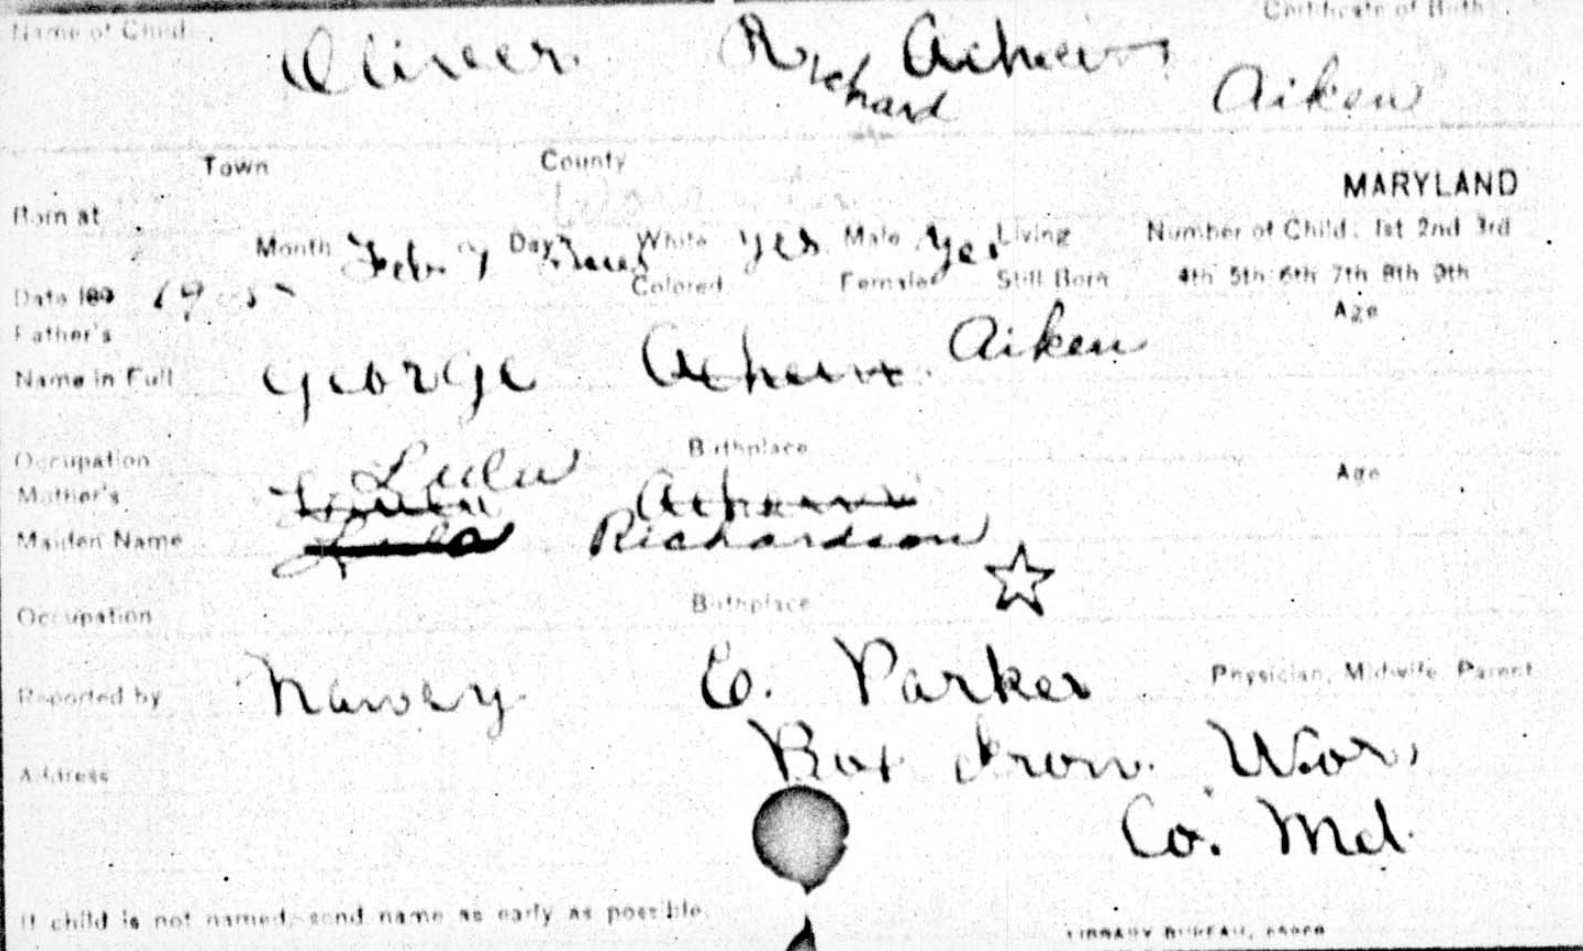 Name of Child Certificate of Birth
Oliver Richard Achew Aiken
Town County
MARYLAND
Born at
Month Feb 7 Day White yes Male yes Living Number of Child: 1st 2nd 3rd
Date 189 1905 Colored Female Still Born 4th 5th 6th 7th 8th 9th
Father's Age
Name in Full George Achew Aiken
Occupation Lulu Birthplace Age
Mother's
Maiden Name Lula Richardson
Occupation Birthplace
Reported by E. Parker Physician, Midwife, Parent
Address Box Iron. Wor,
Co. Md.
If child is not named, send name as early as possible.
LIBRARY BUREAU,